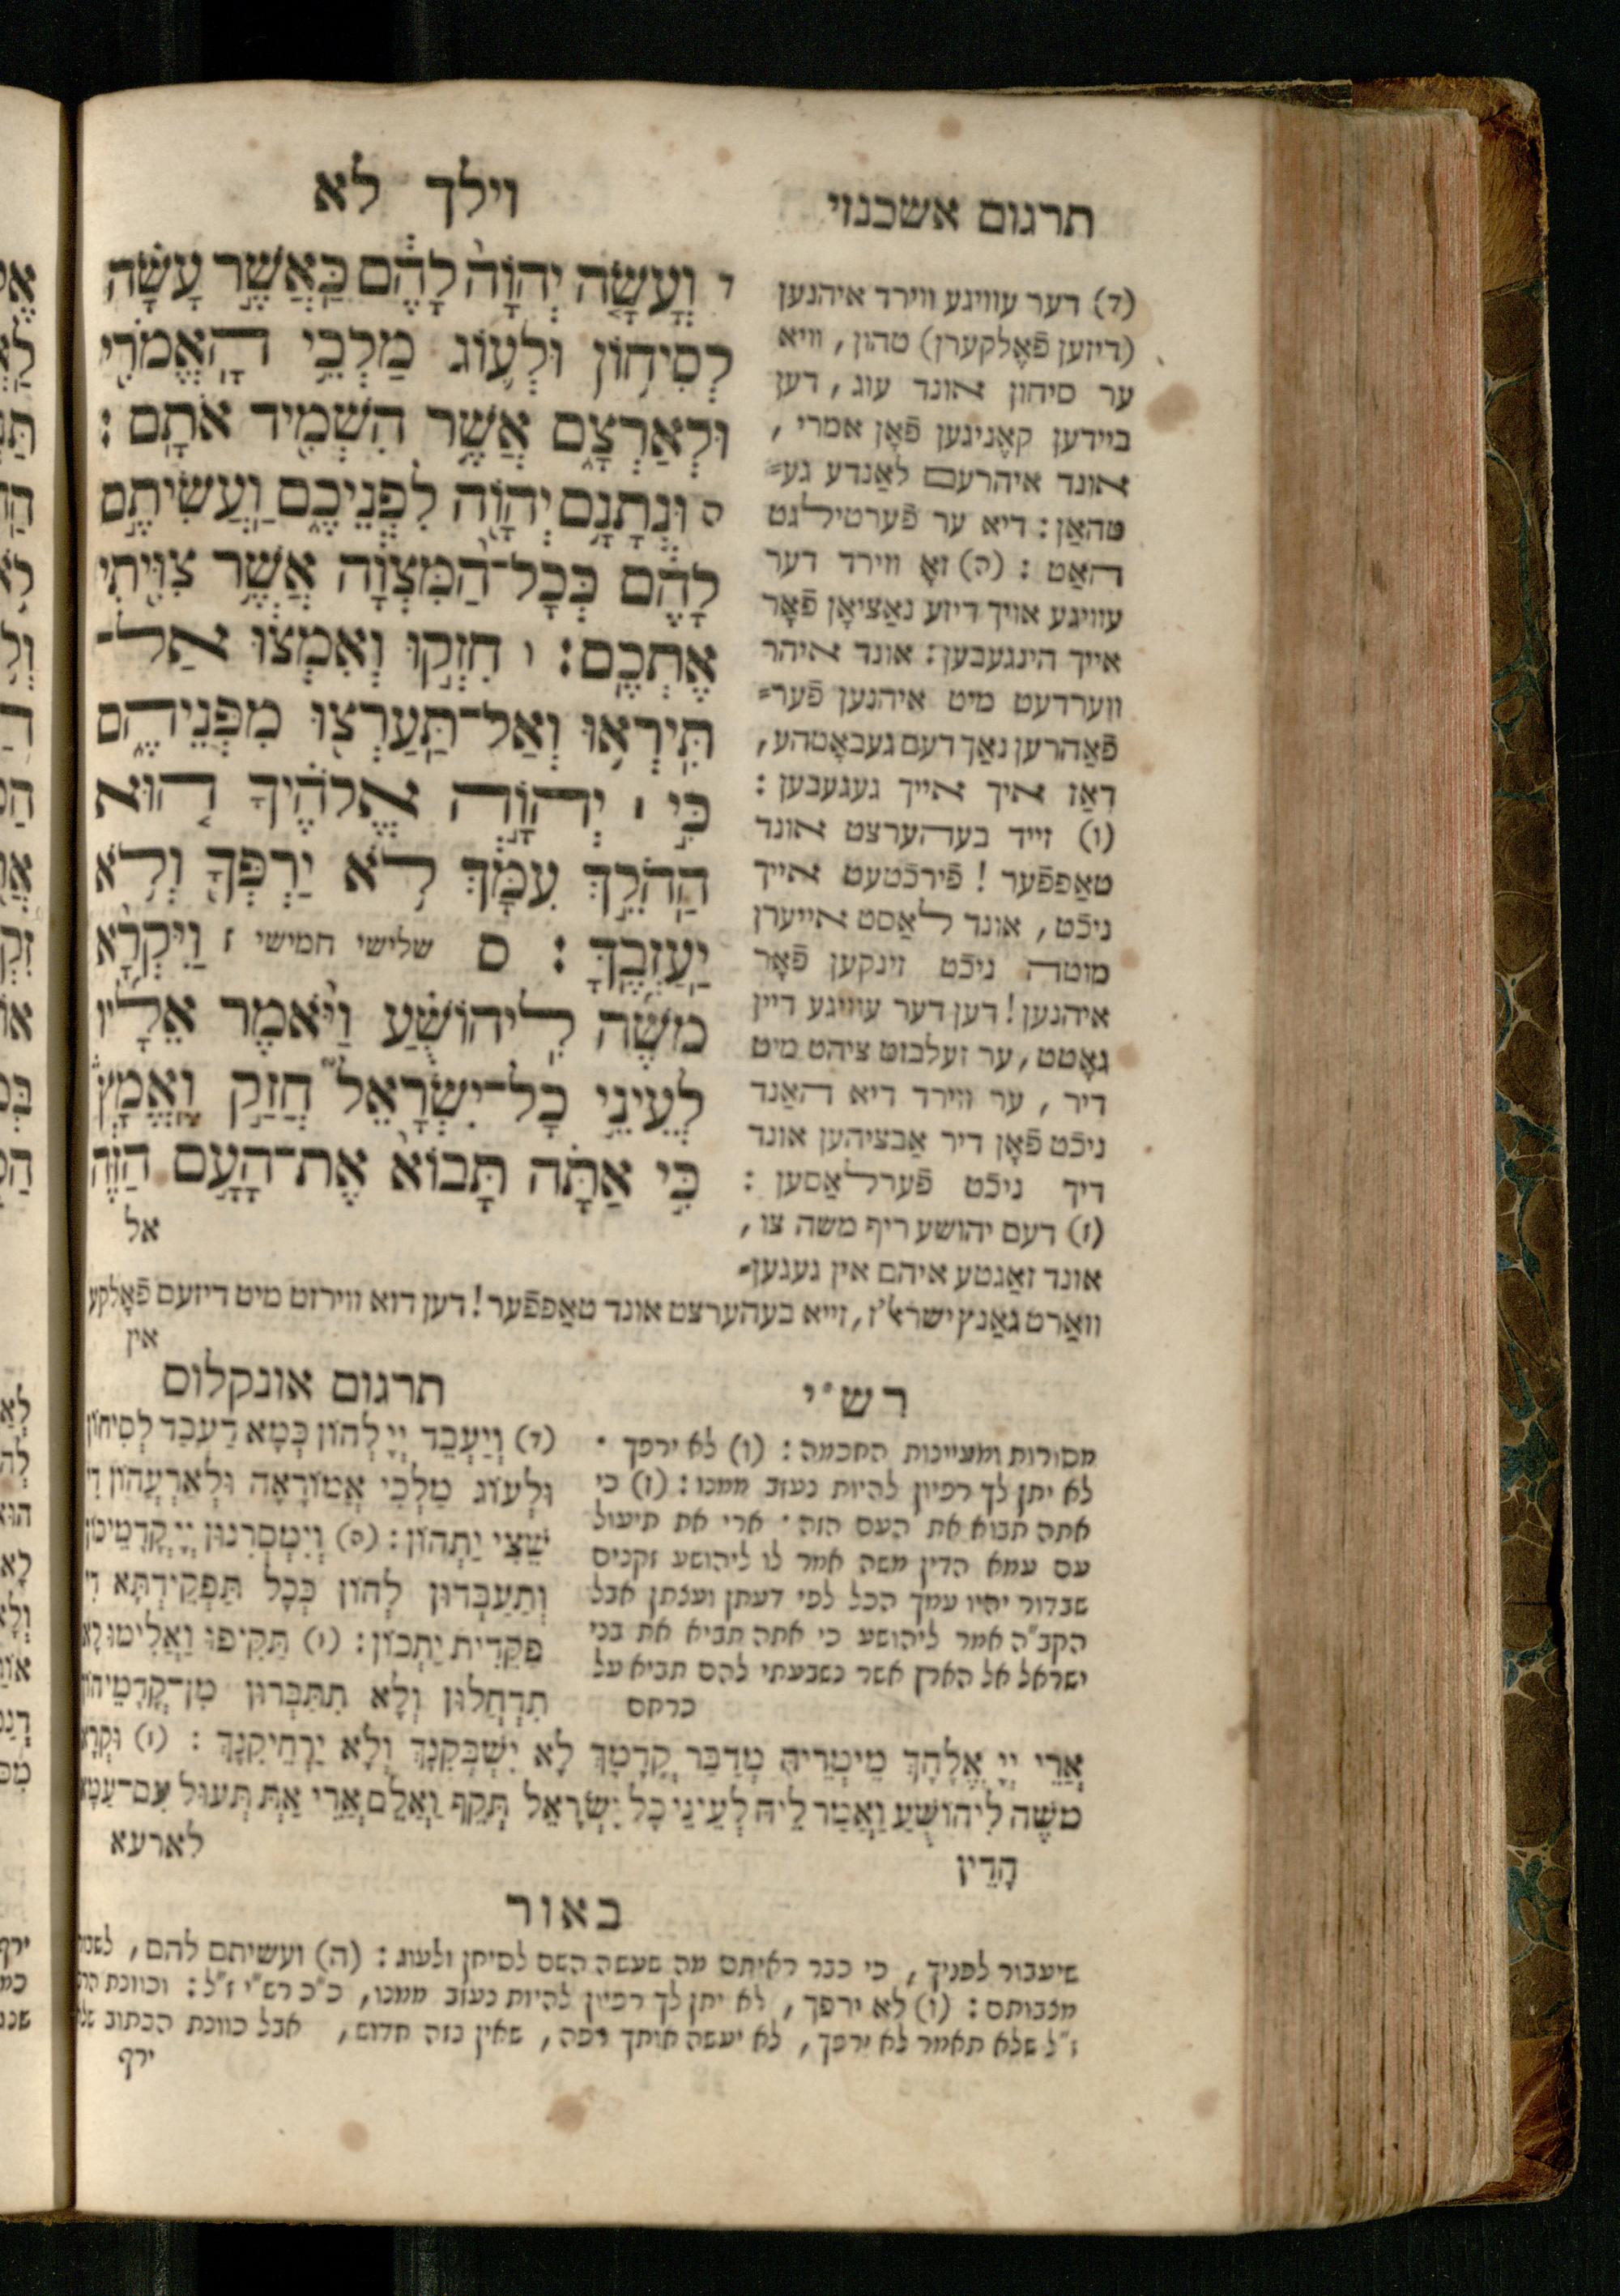 תרגום אשכנזי
(ד) דער עוויגע ווירד איהנען
(דיזען פֿאָלקערן) טהון, וויא
ער סיחון אונד עוג, דען
ביידען קאָניגען פֿאָן אמרי,
אונד איהרעם לאַנדע גע=
טהאַן: דיא ער פֿערטילגט
האַט: (ה) זאָ ווירד דער
עוויגע אויך דיזע נאַציאָן פֿאָר
אייך הינגעבען: אונד איהר
ווערדעט מיט איהנען פֿער=
פֿאַהרען נאַך דעם געבאָטהע,
דאַז איך אייך געגעבען:
(ו) זייד בעהערצט אונד
טאַפפֿער! פֿירכֿטעט אייך
ניכֿט, אונד לאַסט אייערן
מוטה ניכֿט זינקען פֿאָר
איהנען! דען דער עוויגע דיין
גאָטט, ער זעלבזט ציהט מיט
דיר, ער ווירד דיא האַנד
ניכֿט פֿאָן דיר אַבציהען אונד
דיך ניכֿט פֿערלאַסען:
(ז) דעם יהושע ריף משה צו,
אונד זאַגטע איהם אין געגען=
וואַרט גאַנץ ישראל'ז, זייא בעהערצט אונד טאַפפֿער! דען דוא ווירזט מיט דיזעם פֿאָלקע
אין
וילך לא
ד וְעָשָׂה יְהוָה לָהֶם כַּאֲשֶׁר עָשָׂה
לְסִיחוֹן וּלְעוֹג מַלְכֵי הָאֱמֹרִי
וּלְאַרְצָם אֲשֶׁר הִשְׁמִיד אֹתָם:
ה וּנְתָנָם יְהוָה לִפְנֵיכֶם וַעֲשִׂיתֶם
לָהֶם כְּכָל־הַמִּצְוָה אֲשֶׁר צִוִּיתִי
אֶתְכֶם: ו חִזְקוּ וְאִמְצוּ אַל־
תִּירְאוּ וְאַל־תַּעַרְצוּ מִפְּנֵיהֶם
כִּי ׀ יְהוָה אֱלֹהֶיךָ הוּא
הַהֹלֵךְ עִמָּךְ לֹא יַרְפְּךָ וְלֹא
יַעַזְבֶךָּ: ס שלישי חמישי ז וַיִּקְרָא
משֶׁה לִיהוֹשֻׁעַ וַיֹּאמֶר אֵלָיו
לְעֵינֵי כָל־יִשְׂרָאֵל חֲזַק וֶאֱמָץ
כִּי אַתָּה תָּבוֹא אֶת־הָעָם הַזֶּה
אל
רש"י
מסורות ומעיינות החכמה: (ו) לא ירפך ·
לא יתן לך רפיון להיות נעזב ממנו: (ז) כי
אתה תבוא את העם הזה · ארי את תיעול
עם עמא הדין משה אמר לו ליהושע זקנים
שבדור יהיו עמך הכל לפי דעתן ועצתן אבל
הקב"ה אמר ליהושע כי אתה תביא את בני
ישראל אל הארץ אשר נשבעתי להם תביא על
כרחם
תרגום אונקלוס
(ד) וְיַעְבֵּד יְיָ לְהוֹן כְּמָא דַעֲבַד לְסִיחוֹן
וּלְעוֹג מַלְכֵי אֱמוֹרָאָה וּלְאַרְעֲהוֹן דִּי
שֵׁצִי יַתְהוֹן: (ה) וְיִמְסְרִנּוּן יְיָ קֳדָמֵיכוֹן
וְתַעַבְּדוּן לְהוֹן כְּכָל תַּפְקֵידְתָּא דִּי
פַקֵּדִית יַתְכוֹן: (ו) תַּקִיפוּ וַאֲלִימוּ לָא
תִדְחֲלוּן וְלָא תִתַּבְּרוּן מִן־קֳדָמֵיהוֹן
אֲרֵי יְיָ אֱלָהָךְ מֵימְרֵיהּ מְדַבַּר קֳדָמָךְ לָא יִשְׁבְּקִנָּךְ וְלָא יַרְחֵיקִנָּךְ: (ז) וּקְרָא
משֶׁה לִיהוֹשֻׁעַ וַאֲמַר לֵיהּ לְעֵינֵי כָל יִשְׂרָאֵל תְּקֵף וַאֲלֵם אֲרֵי אַתְּ תְּעוּל עִם־עַמָּא
הָדֵין
לארעא
באור
שיעבור לפניך, כי כבר ראיתם מה שעשה השם לסיחן ולעוג: (ה) ועשיתם להם,
מצבותם: (ו) לא ירפך, לא יתן לך רפיון להיות נעזב ממנו, כ"כ רש"י ז"ל: וכוונת
ז"ל שלא תאמר לא ירפך, לא יעשה אותך רפה, שאין בזה חדוש, אבל כוונת הכתוב
ירף